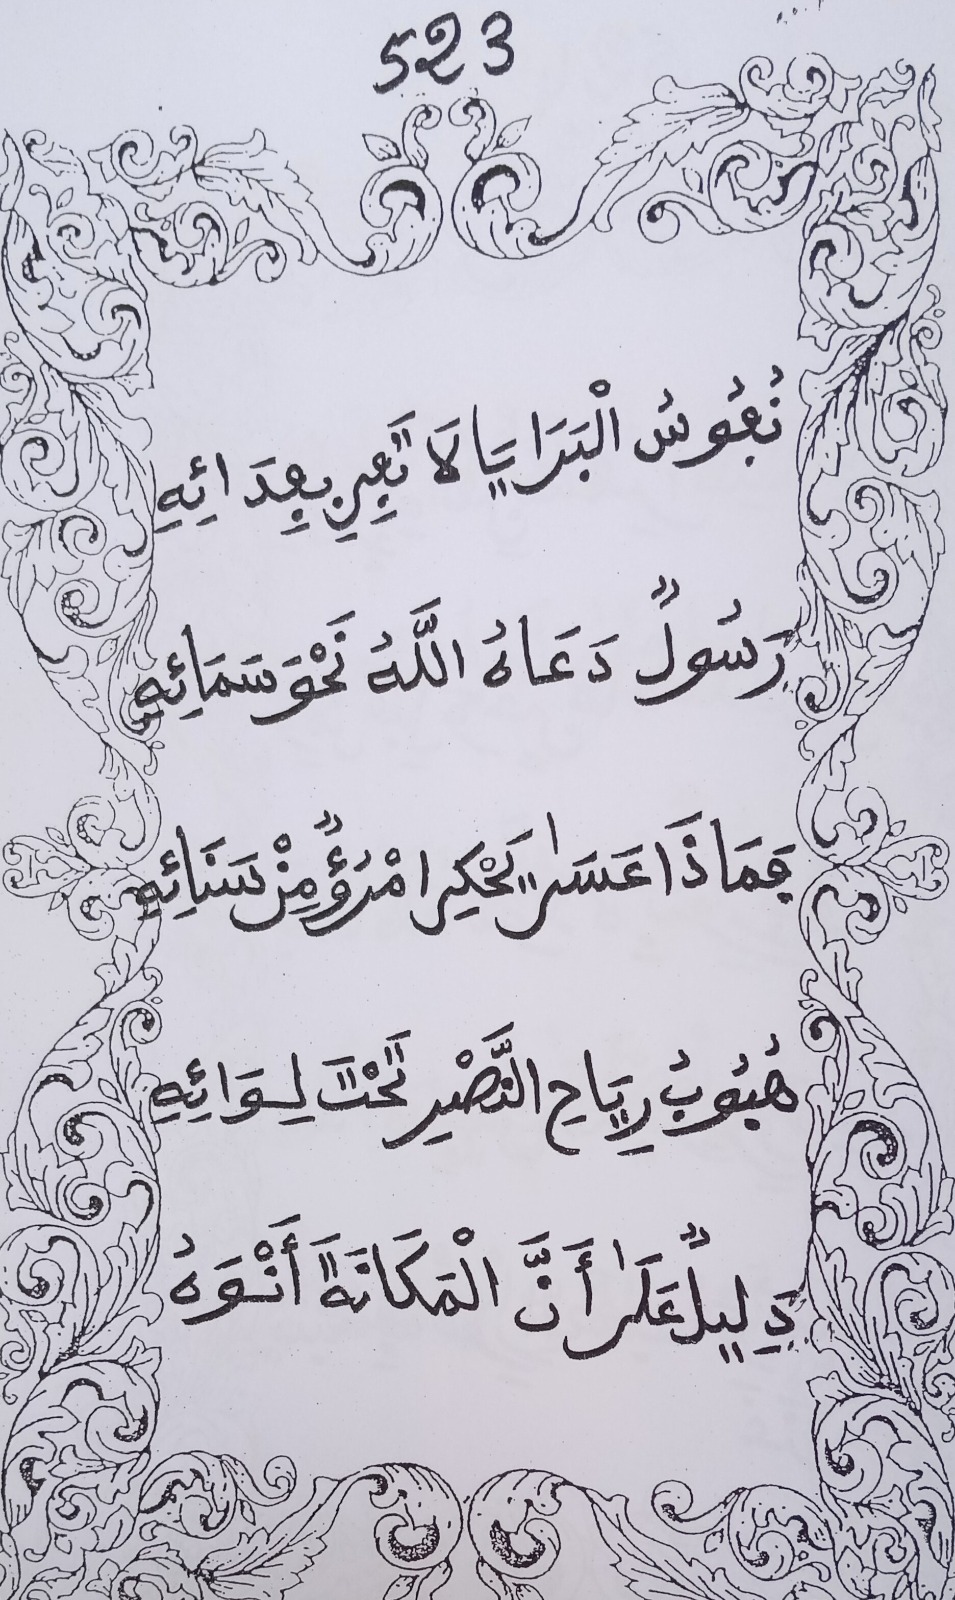 523
نُفُوسُ الْبَرَايَا لَا تَفِي بِفِدَائِهِ
رَسُولٌ دَعَاهُ اللَّهُ نَحْوَ سَمَائِهِ
فَمَاذَا عَسَىٰ يَحْكِي امْرُؤٌ مِنْ سَنَائِهِ
هُبُوبُ رِيَاحِ النَّصْرِ تَحْتَ لِوَائِهِ
دَلِيلٌ عَلَىٰ أَنَّ الْمَكَانَةَ أَنْوَهُ